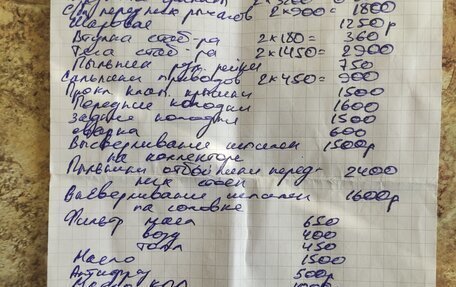 С/б передних рычагов 2×900= 1800
Шаровая 1250р
Втулка стаб-ра 2×180= 360
Тяга стаб-ра 2×1450= 2900
Пыльник рул. рейки 750
Сальники приводов 2×450= 900
Прокл. клап. крышки 1500
Передние колодки 1600
Задние колодки 1500
сварка 600
Высверливание шпилек 1500р
на коллекторе
Пыльники отбойники перед- 2400
них стоек
Высверливание шпилек 1600р
на головке
Фильтр масла 650
возд 400
топл 450
Масло 1500
Антифриз 500р
Масло КПП 1000